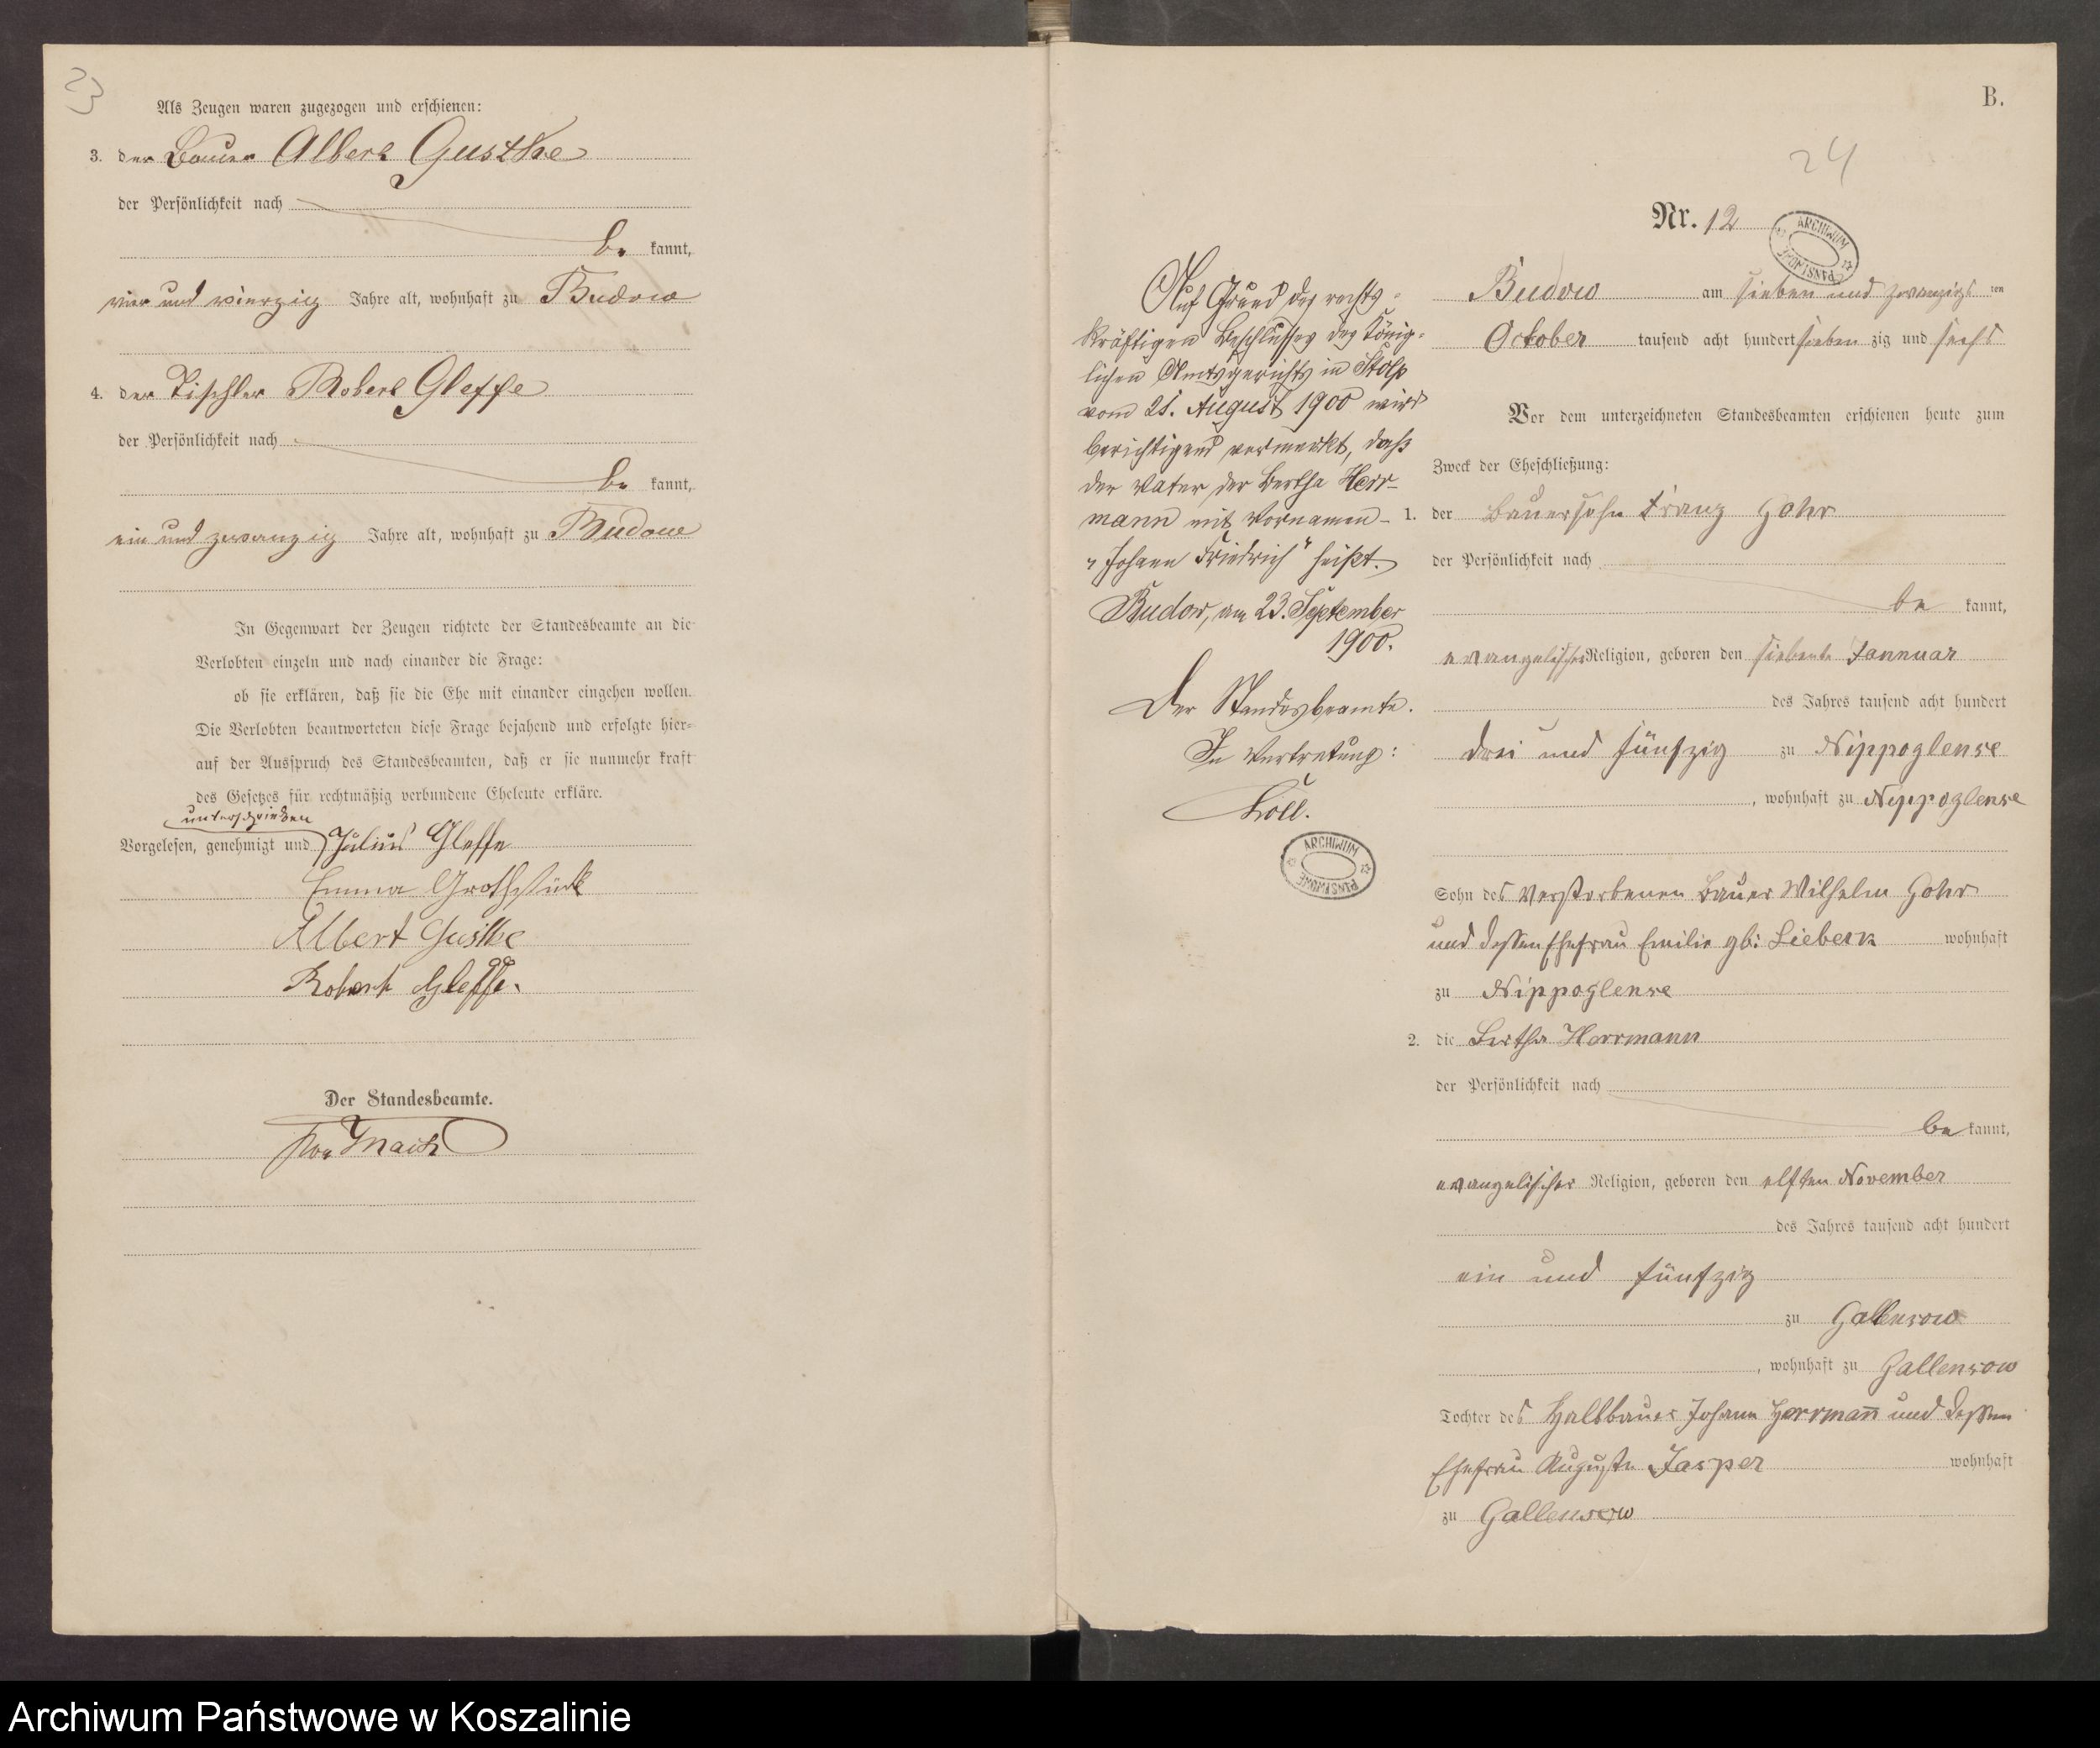 23
Als Zeugen waren zugezogen und erschienen:
3. der Bauer Albert Gustke
der Persönlichkeit nach
be kannt,
vier und vierzig Jahre alt, wohnhaft zu Budow
4. der Tischler Robert Gleffe
der Persönlichkeit nach
be kannt,
ein und zwanzig Jahre alt, wohnhaft zu Budow
In Gegenwart der Zeugen richtete der Standesbeamte an die
Verlobten einzeln und nach einander die Frage:
ob sie erklären, daß sie die Ehe mit einander eingehen wollen.
Die Verlobten beantworteten diese Frage bejahend und erfolgte hier-
auf der Ausspruch des Standesbeamten, daß er sie nunmehr kraft
des Gesetzes für rechtmäßig verbundene Eheleute erkläre.
unterschrieben
Vorgelesen, genehmigt und Julius Gleffe
Emma Grothstück
Albert Gustke
Robert Gleffe.
Der Standesbeamte.
B.
24
Nr. 12
ARCHIWUM PAŃSTWOWE
Budow am sieben und zwanzigs ten
October tausend acht hundert sieben zig und sechs
Vor dem unterzeichneten Standesbeamten erschienen heute zum
Zweck der Eheschließung:
1. der Bauersohn Franz Gohr
der Persönlichkeit nach
be kannt,
evangelischer Religion, geboren den siebente Jannuar
des Jahres tausend acht hundert
drei und fünfzig zu Nippoglense
, wohnhaft zu Nippoglense
Sohn des verstorbenen Bauer Wilhelm Gohr
und dessen Ehefrau Emilie gb: Lieberk wohnhaft
zu Nippoglense
2. die Bertha Herrmann
der Persönlichkeit nach
be kannt,
evangelischer Religion, geboren den elften November
des Jahres tausend acht hundert
ein und fünfzig
zu Gallensow
, wohnhaft zu Gallensow
Tochter des Halbbauer Johann Herrmann und dessen
Ehefrau Auguste Jasper wohnhaft
zu Gallensow
Auf Grund des rechts-
kräftigen Beschlusses des König-
lichen Amtsgerichts in Stolp
vom 21. August 1900 wird
berichtigend vermerkt, daß
der Vater der Bertha Herr-
mann mit Vornamen
"Johann Friedrich" heißt.
Budow, am 23. September
1900.
Der Standesbeamte.
In Vertretung:
Koll.
ARCHIWUM PAŃSTWOWE
Archiwum Państwowe w Koszalinie